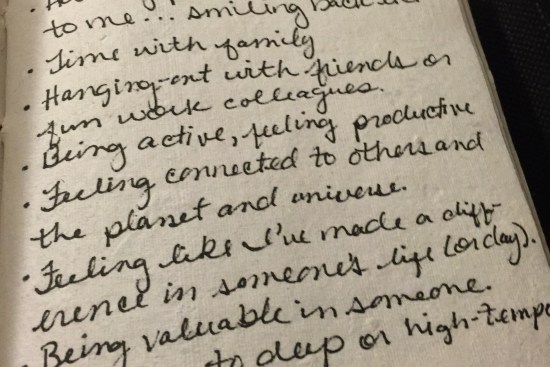 to me... smiling back
• Time with family
• Hanging-out with friends or
fun work colleagues.
• Being active, feeling productive
• Feeling connected to others and
the planet and universe.
• Feeling like I've made a diff-
erence in someone's life (or day).
• Being valuable in someone.
to deep or high-temp